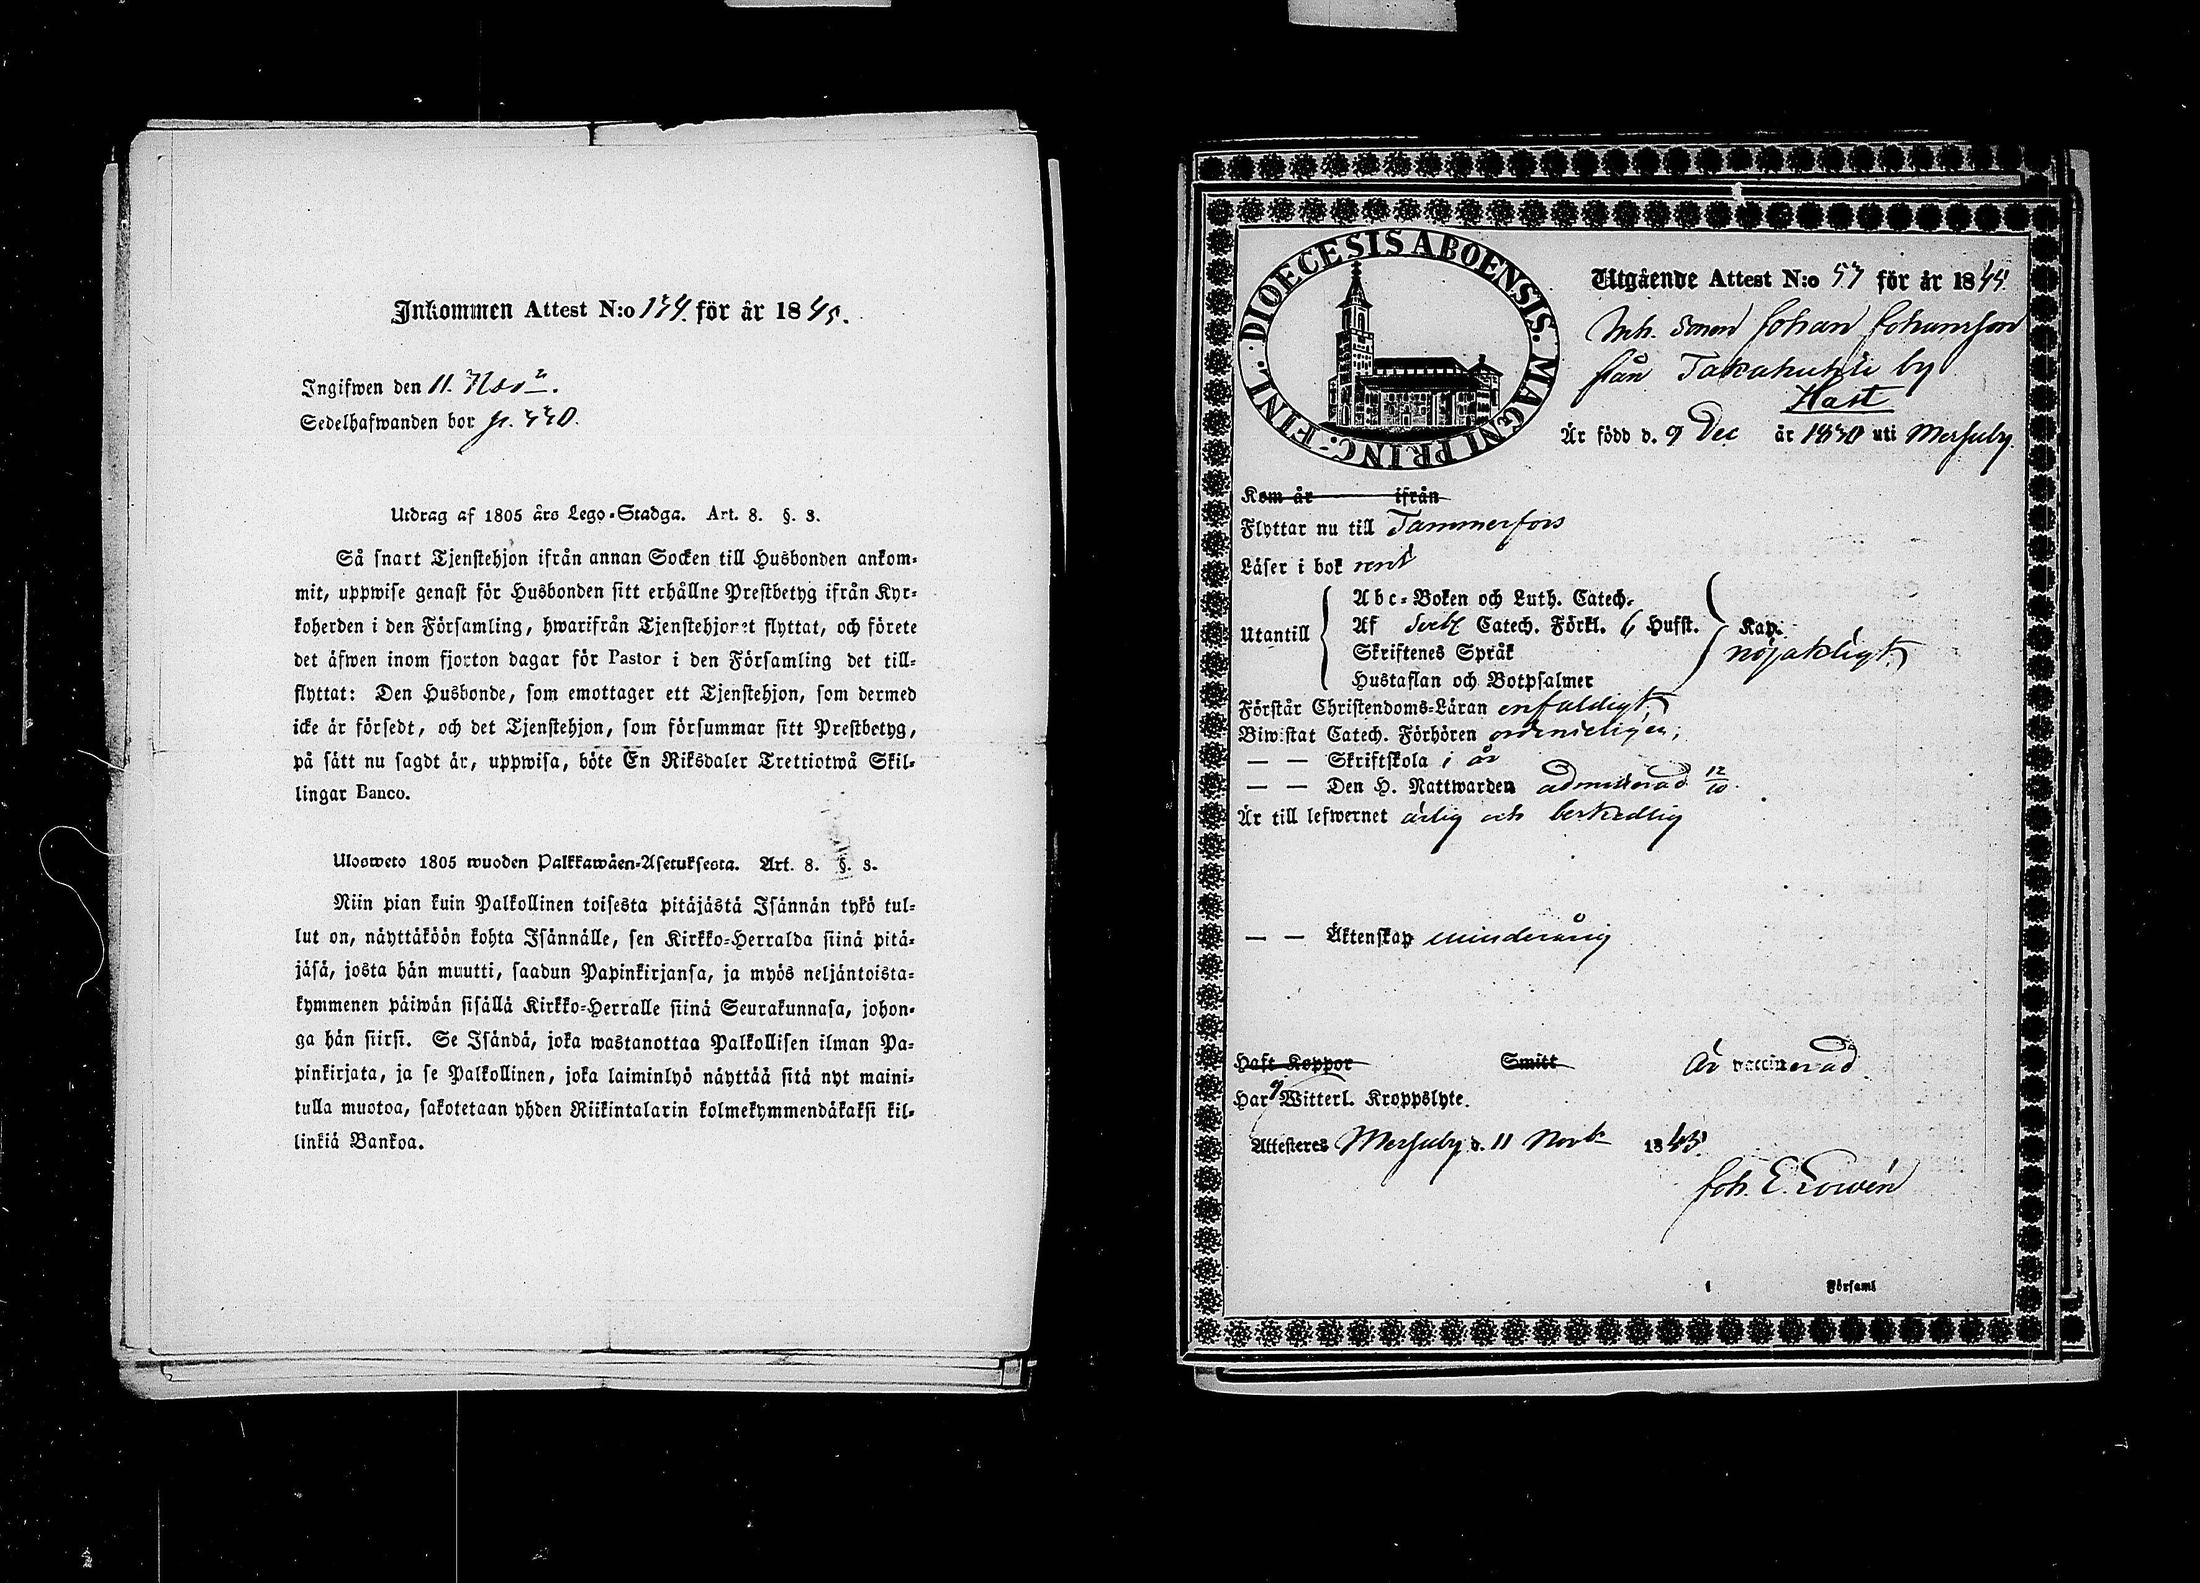 Inkommen Attest N:o 134. för år 1845.
Ingifwen den 11. Nov.
Sedelhafwanden bor p. 330.
Utdrag af 1805 års Lego-Stadga. Art. 8. §. 3.
Så snart Tjenstehjon ifrån annan Socken till Husbonden ankom-
mit, uppwise genast för Husbonden sitt erhållne Prestbetyg ifrån Kyr-
koherden i den Församling, hwarifrån Tjenstehjonet flyttat, och förete
det äfwen inom fjorton dagar för Pastor i den Församling det till-
flyttat: Den Husbonde, som emottager ett Tjenstehjon, som dermed
icke är försedt, och det Tjenstehjon, som försummar sitt Prestbetyg,
på sätt nu sagdt är, uppwisa, böte En Riksdaler Trettiotwå Skil-
lingar Banco.
Ulosweto 1805 wuoden Palkkawäen-Asetuksesta. Art. 8. §. 3.
Niin pian kuin Palkollinen toisesta pitäjästä Isännän tykö tul-
lut on, näyttäköön kohta Isännälle, sen Kirkko-Herralda siinä pitä-
jäsä, josta hän muutti, saadun Papinkirjansa, ja myös neljäntoista-
kymmenen päiwän sisällä Kirkko-Herralle siinä Seurakunnasa, johon-
ga hän siirsi. Se Isändä, joka wastanottaa Palkollisen ilman Pa-
pinkirjata, ja se Palkollinen, joka laiminlyö näyttää sitä nyt maini-
tulla muotoa, sakotetaan yhden Riikintalarin kolmekymmendäkaksi kil-
linkiä Bankoa.
DIOECESIS ABOENSIS. MAGNI PRINC. FINL.
Utgående Attest N:o 57 för år 1845
Inh. Sonen Johan Johansson
från Takahuhti by
Hast
Är född d. 9 Dec år 1830 uti Messuby.
Kom år ifrån
Flyttar nu till Tammerfors
Läser i bok rent
Utantill
Abc-Boken och Luth. Catech.
Af Catech. Förkl. 6 Hufst.
Skriftenes Språk
Hustaflan och Botpsalmer
Kap.
nöjaktligt
Förstår Christendoms-Läran enfaldigt
Biwistat Catech. Förhören ordenteligen;
— — Skriftskola i år
— — Den H. Nattwarden admitterad 12/10.
Är till lefwernet ärlig och beskedlig
— — Äktenskap minderårig
Haft Koppor Smitt Är vaccinerad
Har ej Witterl. Kroppslyte.
Attesteres Messuby d. 11 Novb 1845.
Joh. E. Lowén
i Församl